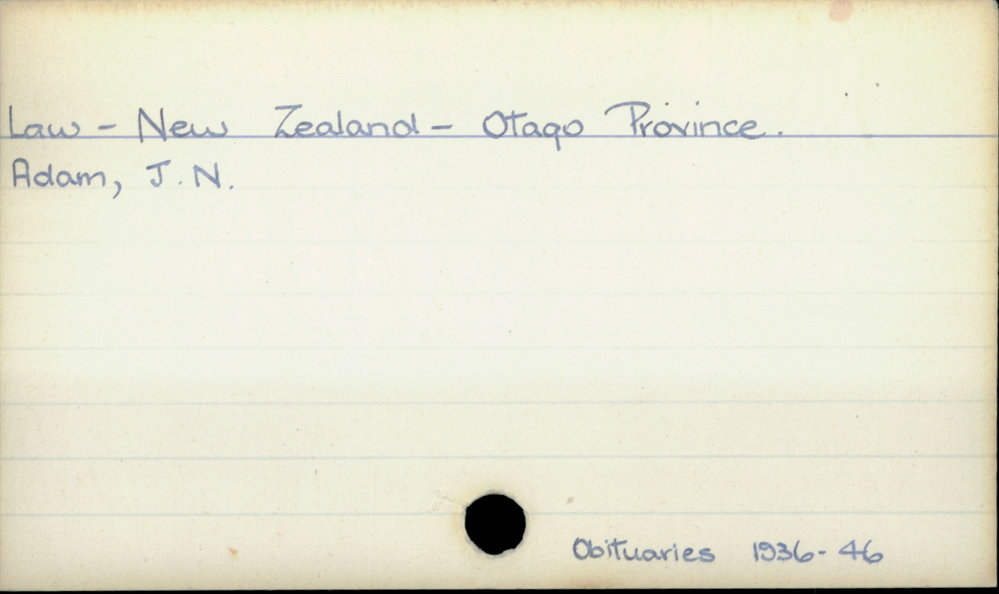 Law - New Zealand - Otago Province.
Adam, J. N.
Obituaries 1936-46